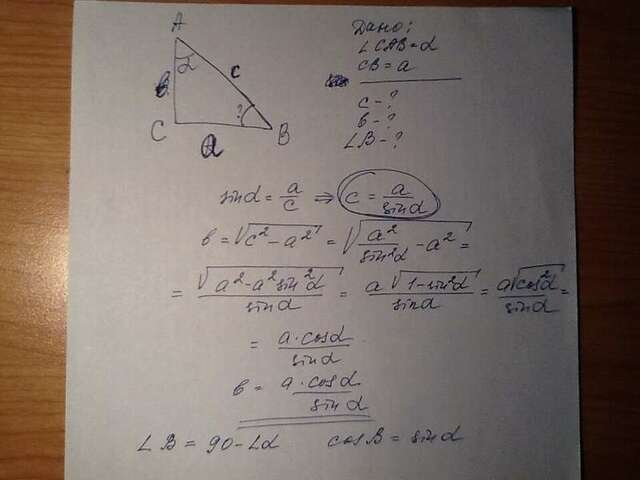 A
α
в
c
?
C
a
B
Дано:
∠CAB=α
CB=a
c-?
в-?
∠B-?
sinα = a/c ⇒ c = a/sinα
в = √(c² - a²) = √(a²/sin²α - a²) =
= √(a² - a² sin²α)/sinα = a√(1 - sin²α)/sinα = a√(cos²α)/sinα =
= a·cosα/sinα
в = a·cosα/sinα
∠B = 90 - ∠α cosB = sinα